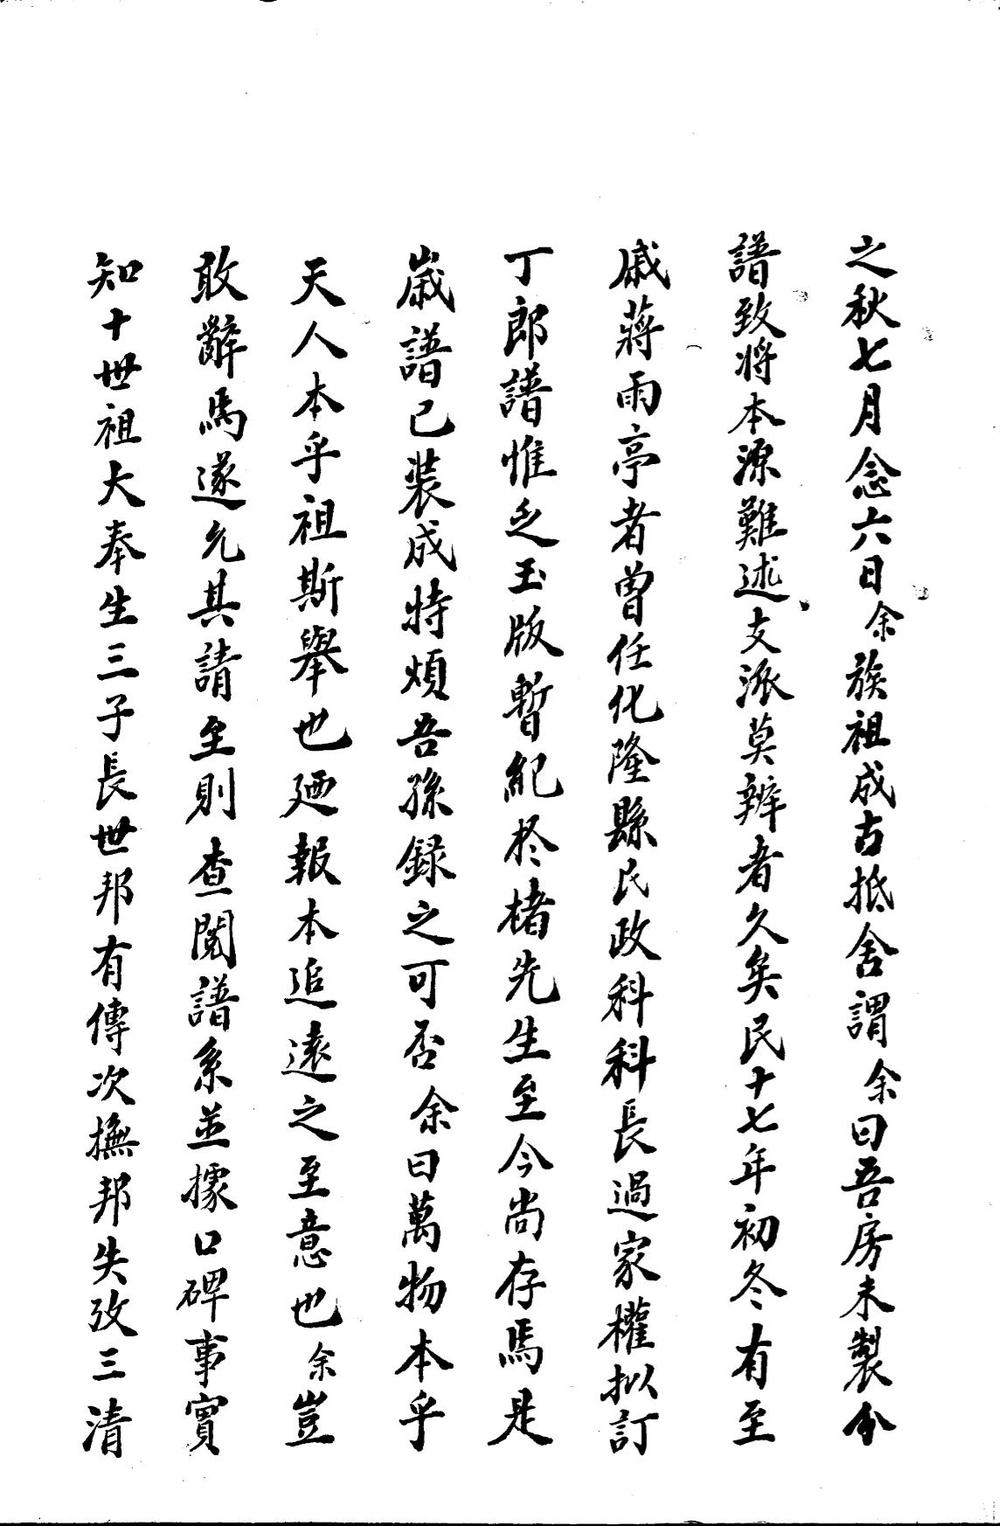 之秋七月念六日余族祖成古抵舍謂余曰吾房未製分
譜致将本源難述支派莫辨者久矣民十七年初冬有至
戚蔣雨亭者曾任化隆縣民政科科長過家權拟訂
丁郎譜惟乏玉版暫紀於楮先生至今尚存焉是
歲譜已装成特煩吾孫録之可否余曰萬物本乎
天人本乎祖斯舉也廼報本追遠之至意也余豈
敢辭焉遂允其請至則查閱譜系並據口碑事實
知十世祖大奉生三子長世邦有傳次撫邦失攷三清